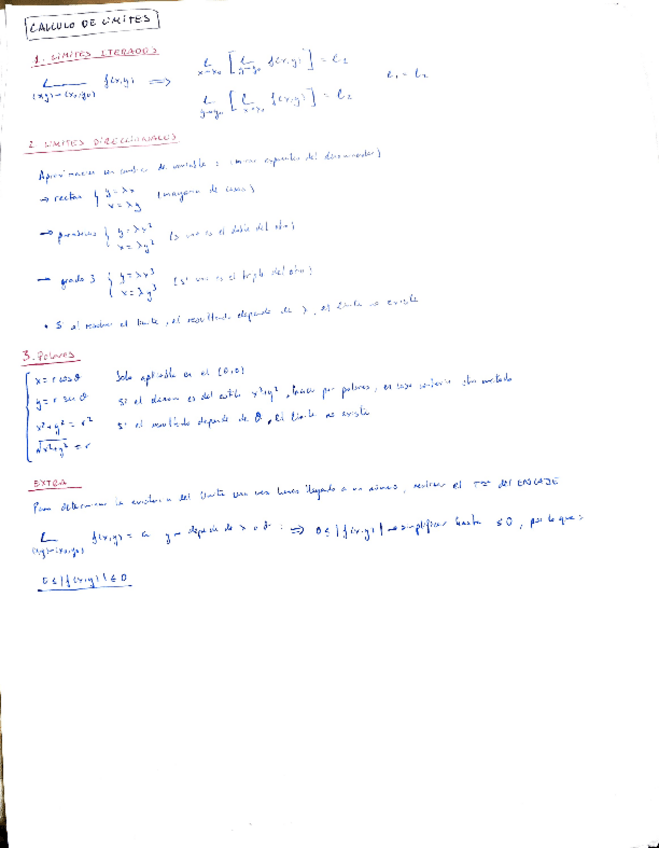 CALCULO DE LIMITES
1. LIMITES ITERADOS
L (x,y)→(x₀,y₀) f(x,y) ⟹ L x→x₀ [ L y→y₀ f(x,y) ] = l₂
l₁ = l₂
L y→y₀ [ L x→x₀ f(x,y) ] = l₂
2 LIMITES DIRECCIONALES
Aproximaciones con cambio de variable : (mirar exponentes del denominador)
→ rectas { y = λx (mayoria de casos)
x = λy
→ parabolas { y = λx² (si uno es el doble del otro)
x = λy²
→ grado 3 { y = λx³ (si uno es el triple del otro)
x = λy³
• Si al resolver el limite, el resultado depende de λ, el limite no existe
3. Polares
x = r cos θ Solo aplicable en el (0,0)
y = r sen θ Si el denom es del estilo x²+y², hacer por polares, en caso contrario otro metodo
x²+y² = r² Si el resultado depende de θ, el limite no existe
√x²+y² = r
EXTRA
Para determinar la existencia del limite una vez hemos llegado a un número, realizar el Tª del ENCAJE
L (x,y)→(x₀,y₀) f(x,y) = a y no depende de λ o θ : ⟹ 0 ≤ |f(x,y)| → simplificar hasta ≤ 0, por lo que :
0 ≤ |f(x,y)| ≤ 0